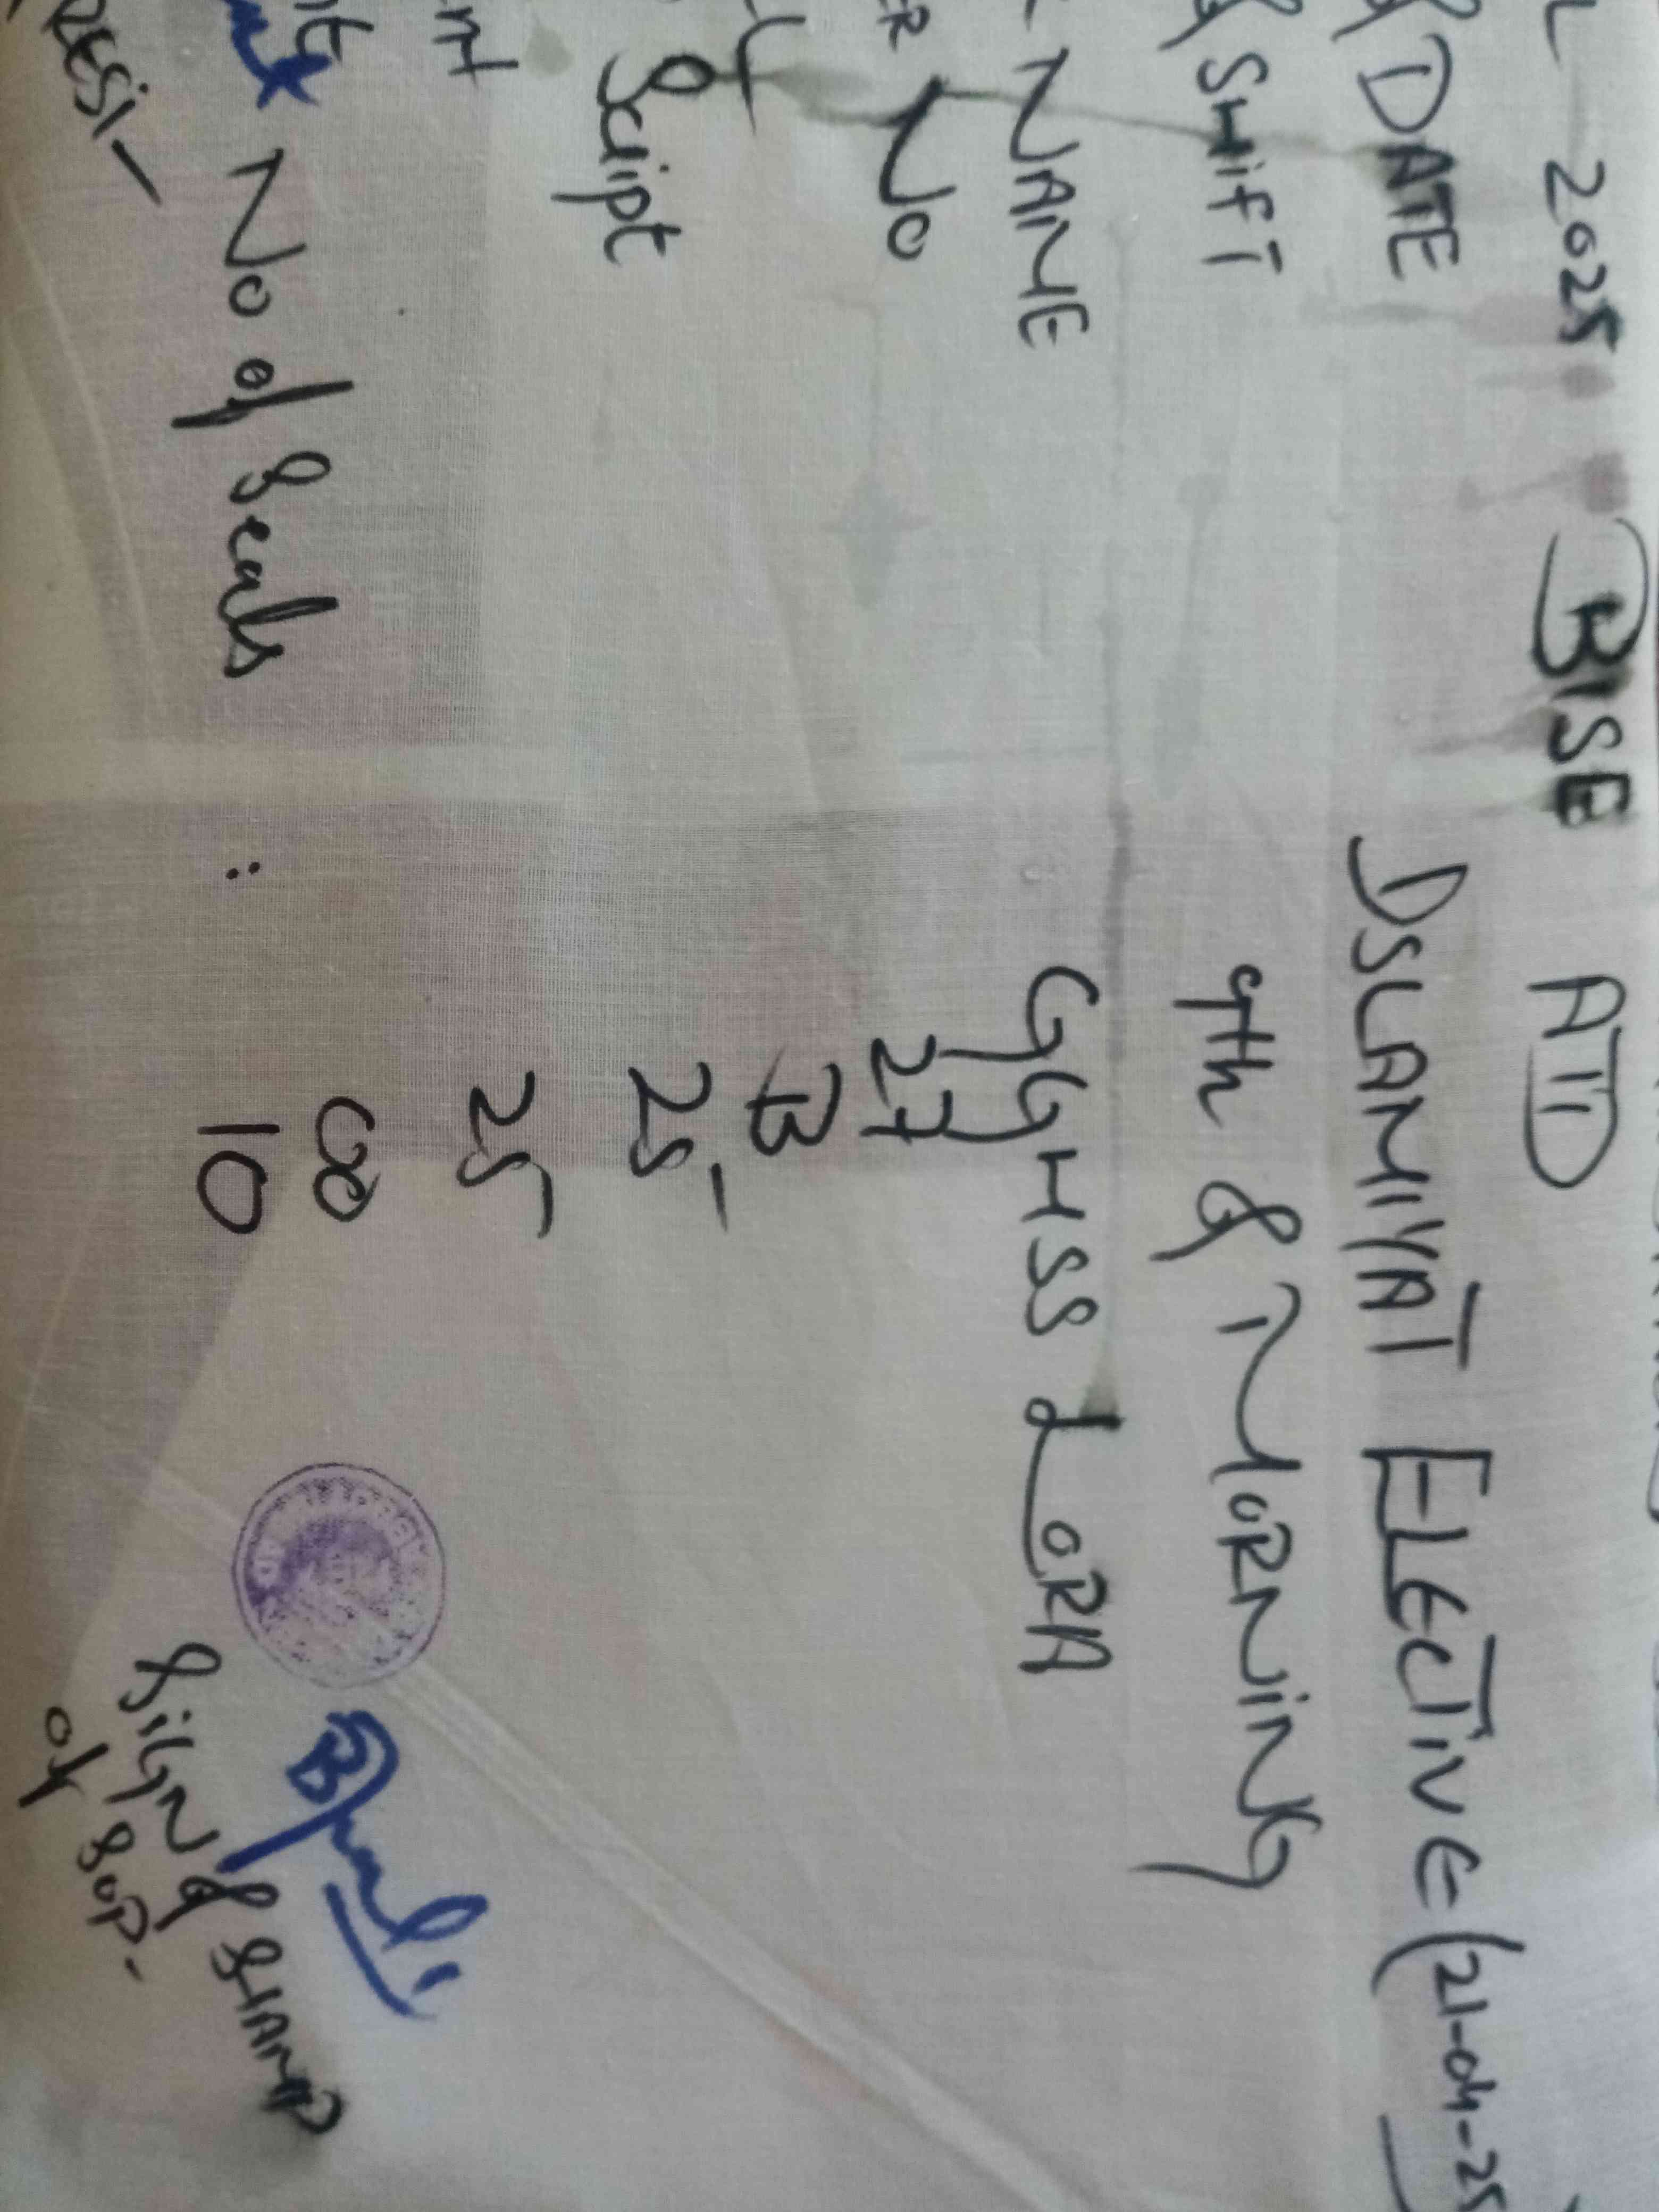 2025 BISE ATD
& DATE ISLAMIYAT ELECTIVE (21-04-25
& SHIFT 9th & MORNING
NAME GGHSS LORA
ER No 27
B
Script 25
nt 25
00
No of Seals : 10
RESi-
SIGN & STAMP
of SUP.